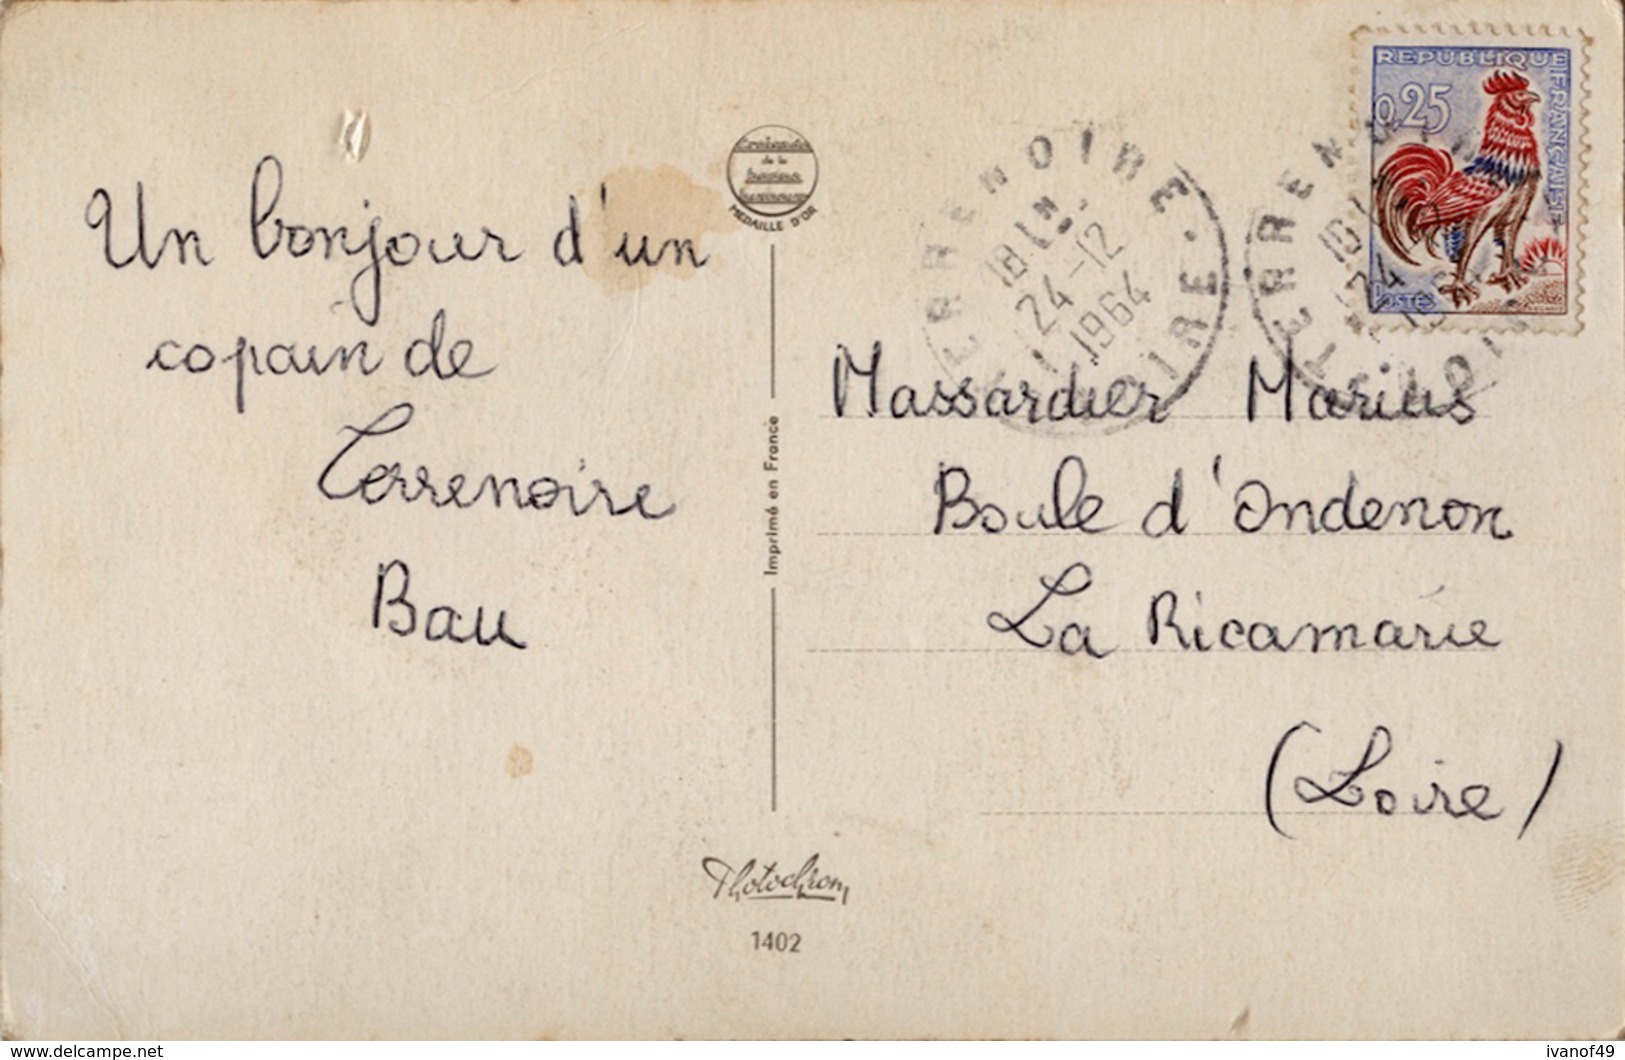 Un bonjour d'un
copain de
Terrenoire
Bau
MEDAILLE D'OR
Imprimé en France
Photochrom
1402
REPUBLIQUE FRANÇAISE
0,25
POSTES
TERRENOIRE
18H
24-12
1964
LOIRE
TERRENOIRE
24
LOIRE
Massardier Marius
Boule d'Ondenon
La Ricamarie
(Loire)
ivanof49